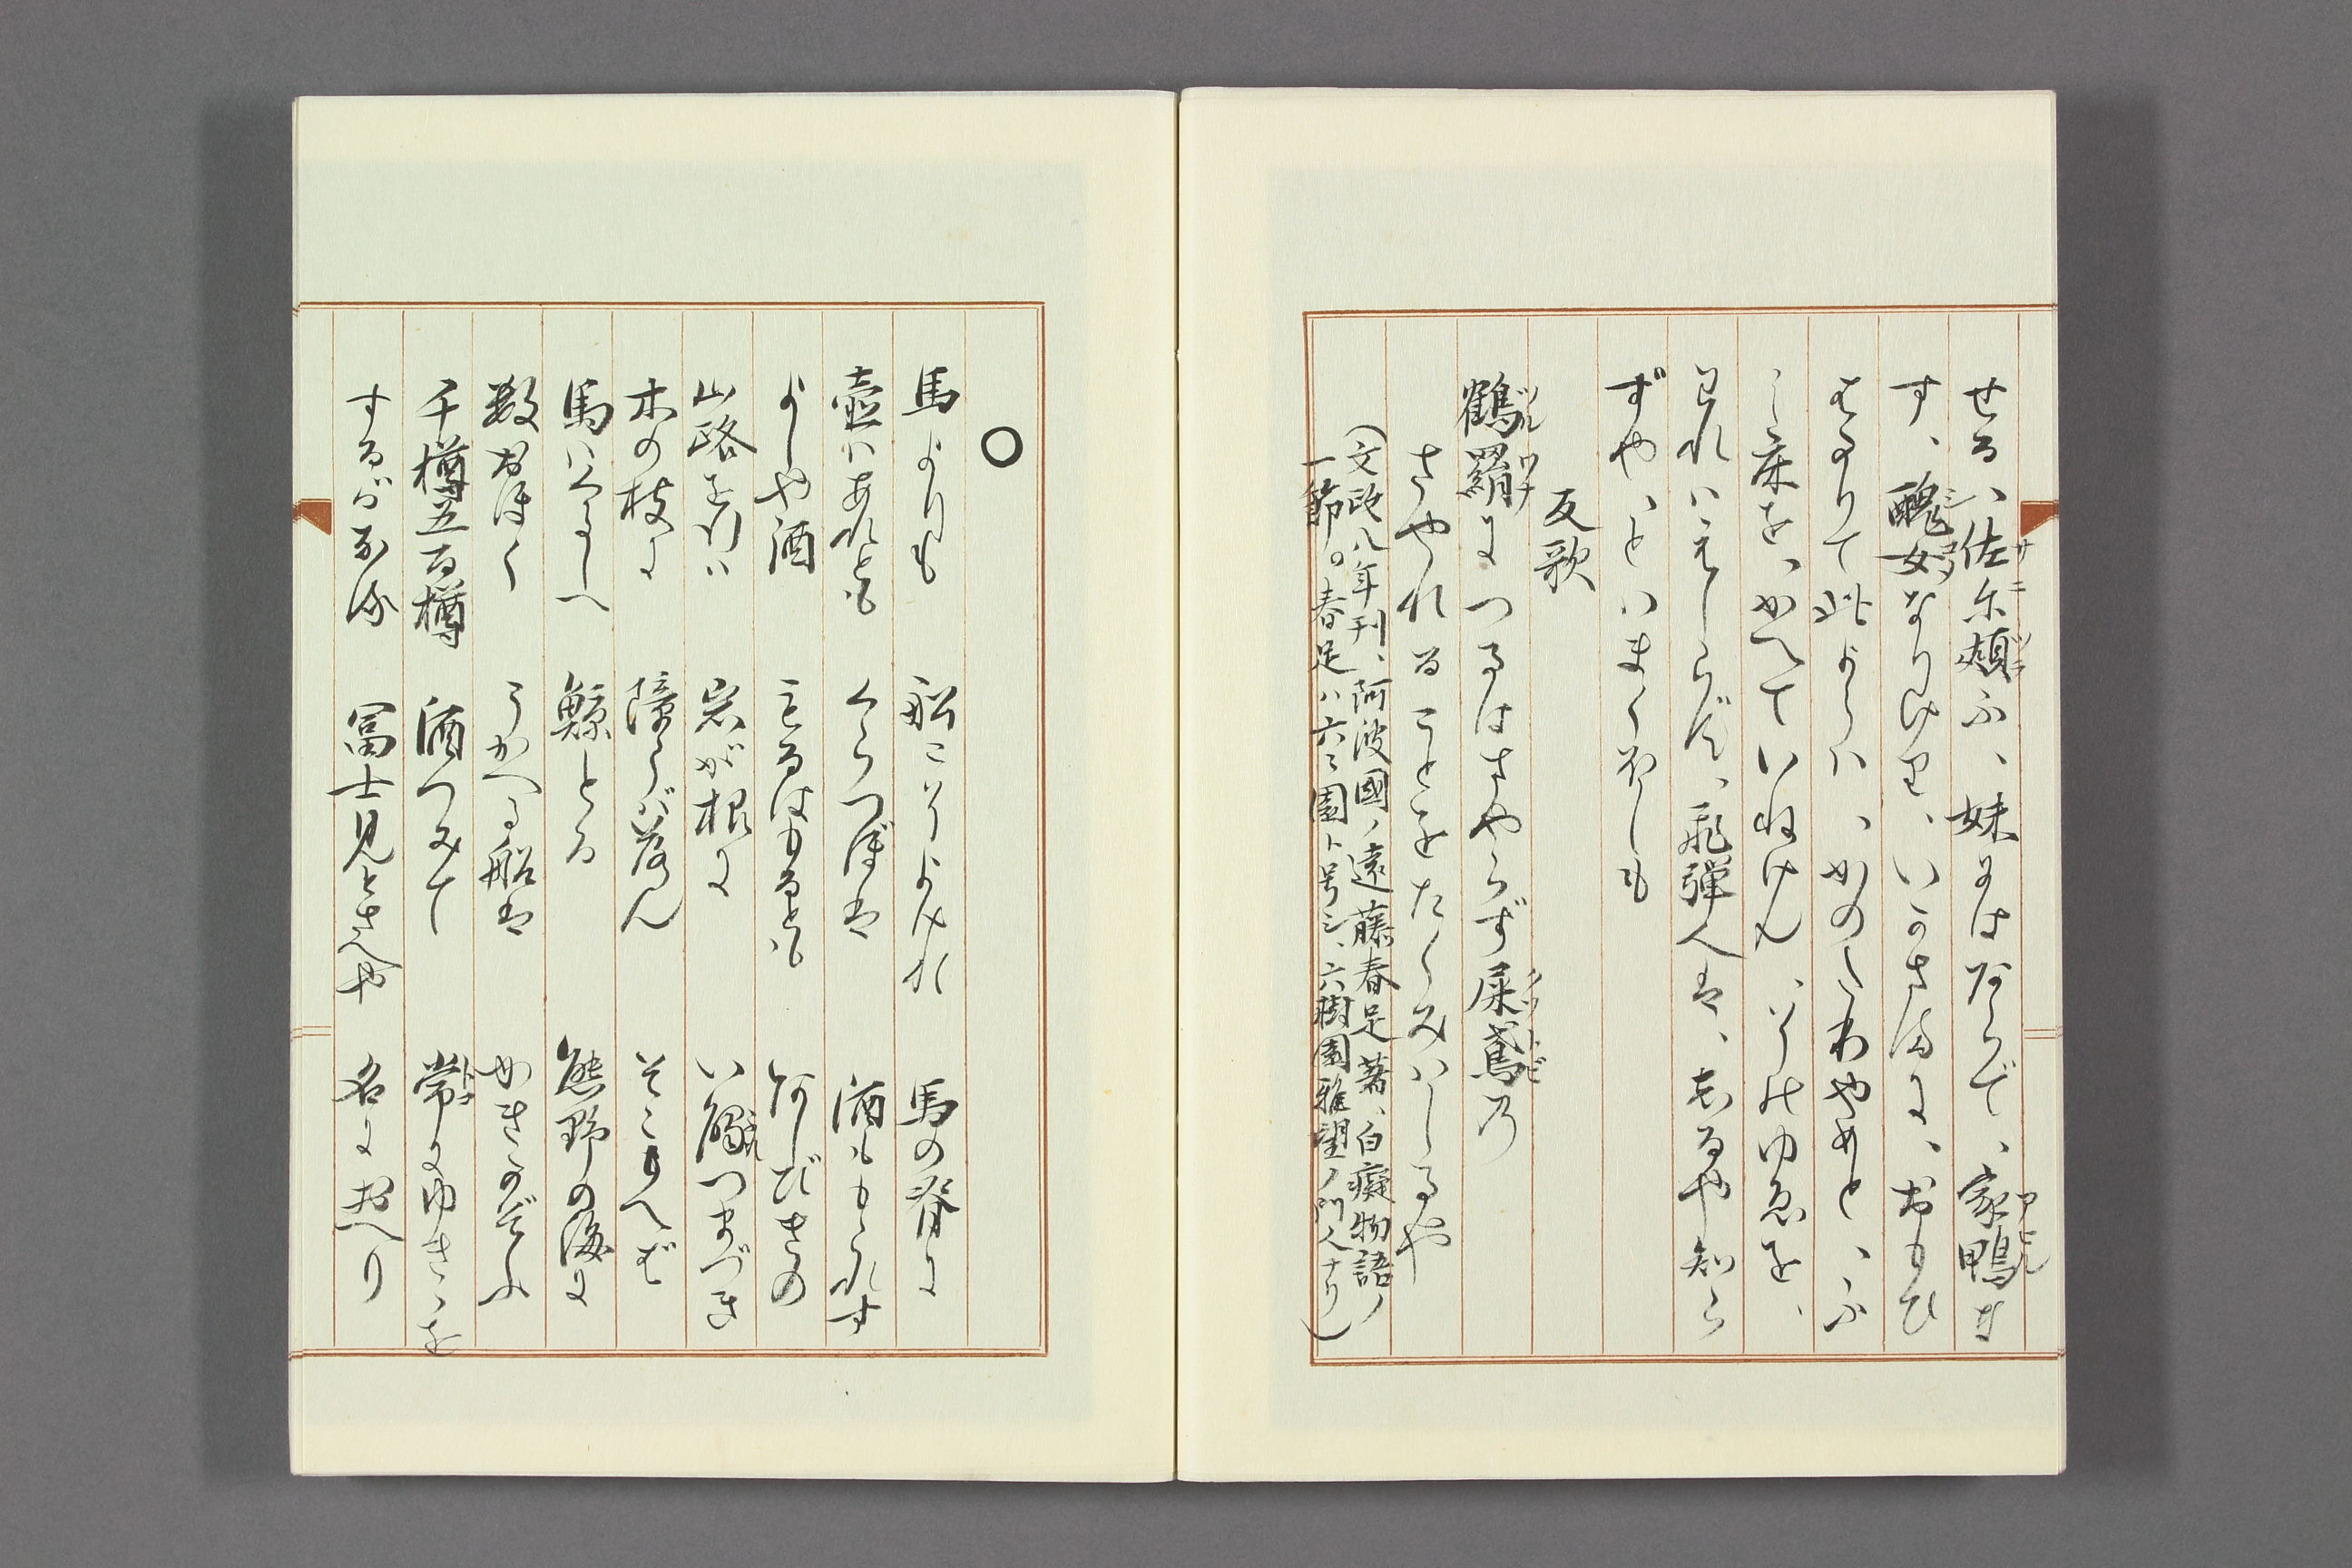 せるハ佐尓頬ふ、妹にはあらで、家鴨な
す、醜女なりけり、いかさまに、おもひ
はかりて此よらハ、かのたわやめと、ふ
し床を、かへていねけん、そのゆゑを、
われハえしらず、飛彈人は、しるや知ら
ずや、とはまくほしも
反歌
鶴羂につるはさやらず屎鳶乃
さやれることをたくみハしるや
(文政八年刊、阿波國ノ遠藤春足著、白癡物語ノ
一節。春足ハ六々園ト号シ、六樹園雅望ノ門人ナリ)
〇
馬よりも　船こそよけれ　馬の脊に
壺ハあれども　くらつぼは　酒ももられず
よしや酒　もるはもるとも　あしびきの
山路を行ハ　岩が根に　い觸つまづき
木の枝に　障らバ落ん　そこもへば
馬ハくるし　鯨とる　熊野の海に
数おほく　うかべる船は　かきかぞふ
千樽五百樽　酒つみて　常にゆきゝを
するがなる　冨士見とさへや　名におへり